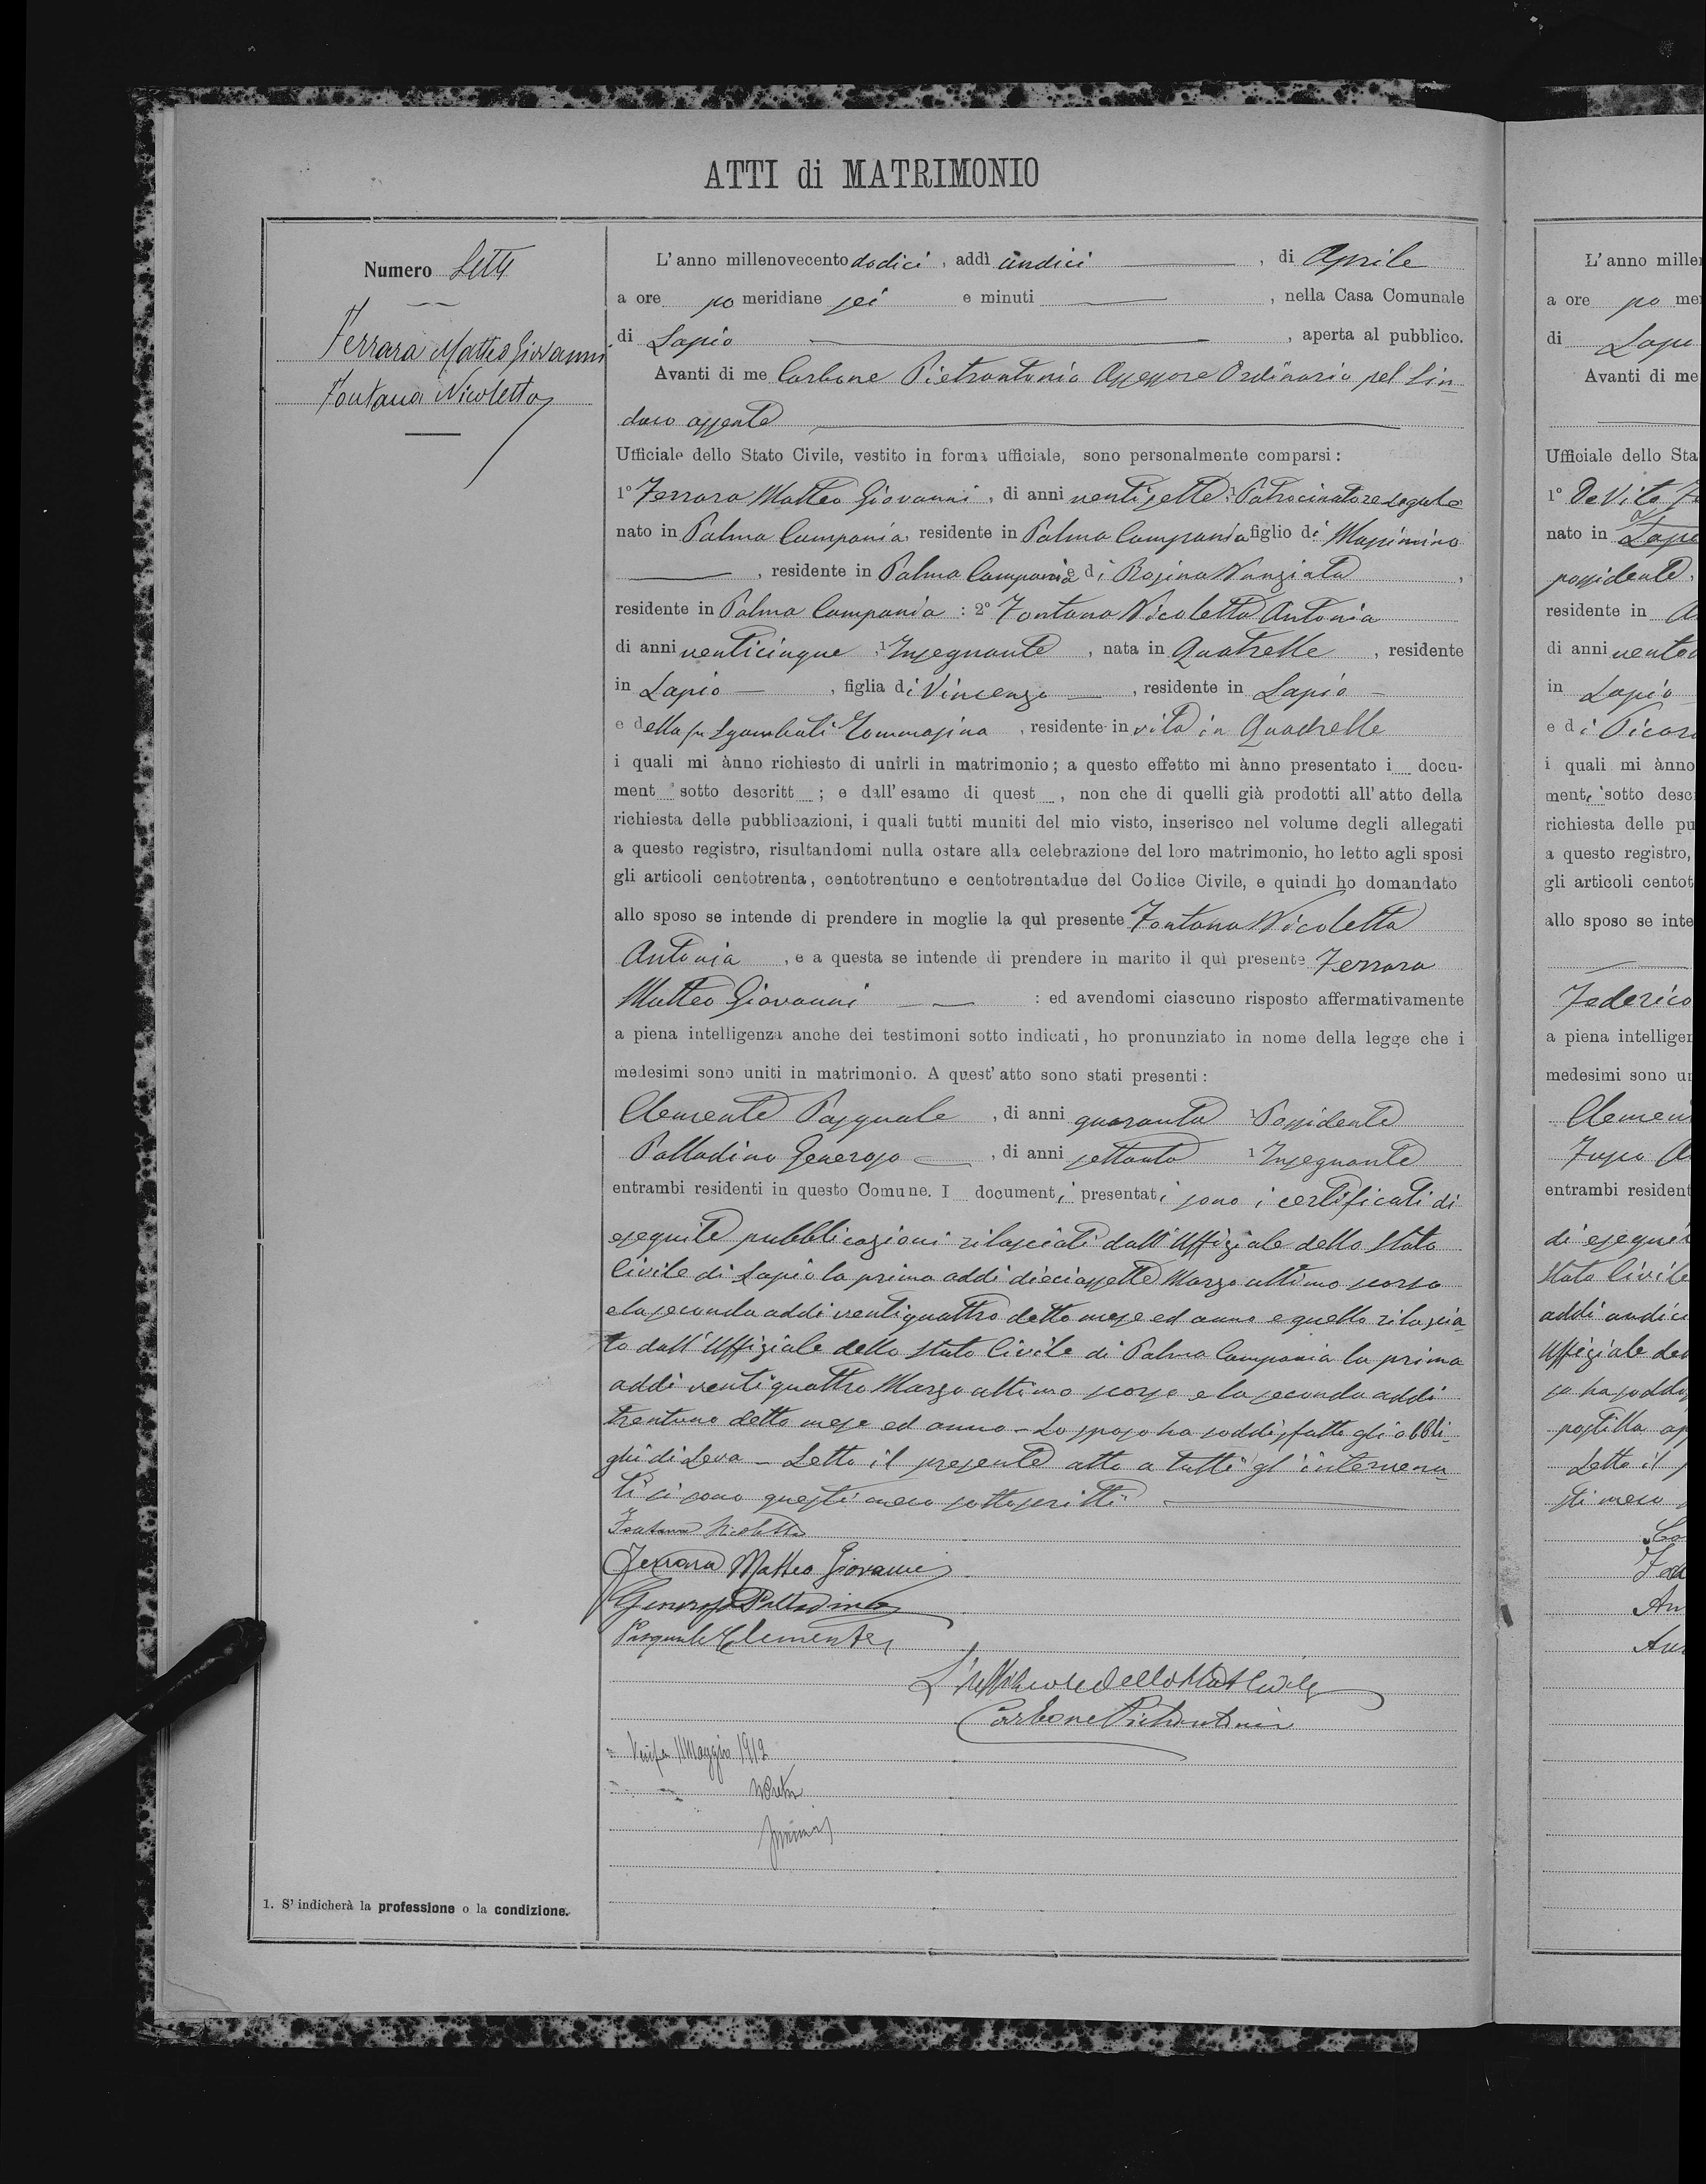 ATTI di MATRIMONIO
Numero Sette
Ferrara Matteo Giovanni
Fontana Nicoletta
L'anno millenovecento dodici, addì undici, di Aprile
a ore po meridiane sei e minuti, nella Casa Comunale
di Lapio, aperta al pubblico.
Avanti di me Carbone Pietrantonio Assessore Ordinario pel Sin-
daco assente
Ufficiale dello Stato Civile, vestito in forma ufficiale, sono personalmente comparsi:
1° Ferrara Matteo Giovanni, di anni ventisette, 1 Patrocinatore legale
nato in Palma Campania, residente in Palma Campania figlio di Massimino
, residente in Palma Campania e di Rosina Nunziata,
residente in Palma Campania : 2° Fontana Nicoletta Antonia
di anni venticinque, 1 Insegnante, nata in Quatrelle, residente
in Lapio, figlia di Vincenzo, residente in Lapio
e della fu Sgambati Tommasina, residente in vita in Quadrelle
i quali mi ànno richiesto di unirli in matrimonio; a questo effetto mi ànno presentato i docu-
ment sotto descritt ; e dall'esame di quest , non che di quelli già prodotti all'atto della
richiesta delle pubblicazioni, i quali tutti muniti del mio visto, inserisco nel volume degli allegati
a questo registro, risultandomi nulla ostare alla celebrazione del loro matrimonio, ho letto agli sposi
gli articoli centotrenta, centotrentuno e centotrentadue del Codice Civile, e quindi ho domandato
allo sposo se intende di prendere in moglie la quì presente Fontana Nicoletta
Antonia, e a questa se intende di prendere in marito il quì presente Ferrara
Matteo Giovanni : ed avendomi ciascuno risposto affermativamente
a piena intelligenza anche dei testimoni sotto indicati, ho pronunziato in nome della legge che i
medesimi sono uniti in matrimonio. A quest'atto sono stati presenti:
Clemente Pasquale, di anni quaranta 1 Possidente
Palladino Generoso, di anni settanta 1 Insegnante
entrambi residenti in questo Comune. I documenti presentati sono i certificati di
eseguite pubblicazioni rilasciati dall'Uffiziale dello Stato
Civile di Lapio la prima addi diciassette Marzo ultimo scorso
e la seconda addi ventiquattro detto mese ed anno e quello rilascia-
to dall'Uffiziale dello Stato Civile di Palma Campania la prima
addi ventiquattro Marzo ultimo scorso e la seconda addi
trentuno detto mese ed anno - Lo sposo ha soddisfatto gli obbli-
ghi di Leva - Letto il presente atto a tutti gl'intervenu-
ti si sono questi meco sottoscritti
Fontana Nicoletta
Ferrara Matteo Giovanni
Generoso Palladino
Pasquale Clemente
L'Uffiziale dello Stato Civile
Carbone Pietrantonio
11 Maggio 1912
1. S'indicherà la professione o la condizione.
L'anno mille
a ore po me
di Lapi
Avanti di me
Ufficiale dello Sta
1° De Vito
nato in Lapi
possidente,
residente in
di anni
in Lapio
e di
i quali mi ànno
menti sotto desc
richiesta delle pu
a questo registro,
gli articoli centot
allo sposo se inte
Federico
a piena intelligen
medesimi sono un
Clemen
entrambi resident
di esegui
Stato Civile
addi undici
Uffiziale del
Letto il
sti meco